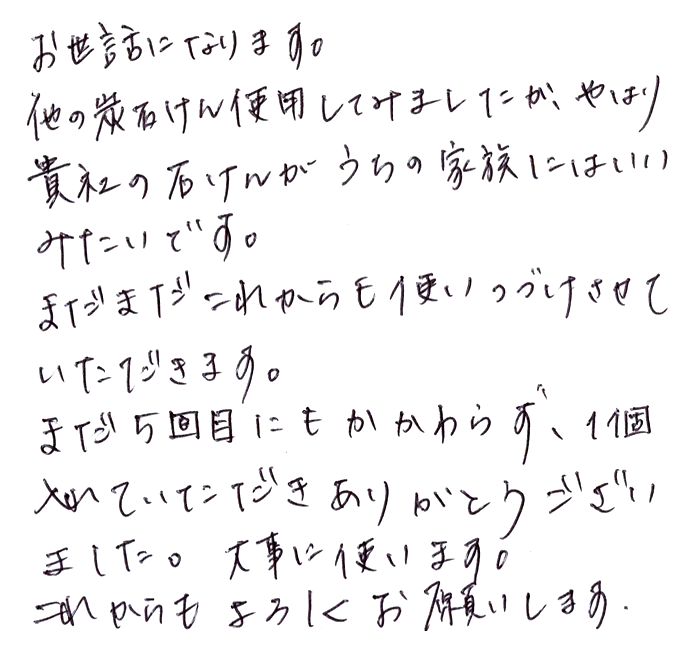 お世話になります。
他の炭石けん使用してみましたが、やはり
貴社の石けんがうちの家族にはいい
みたいです。
まだまだこれからも使いつづけさせて
いただきます。
まだ5回目にもかかわらず、11個
入れていただきありがとうござい
ました。大事に使います。
これからもよろしくお願いします.